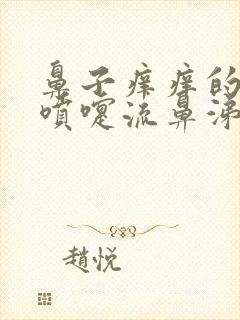 鼻子痒痒的
喷嚏流鼻涕
趙悦